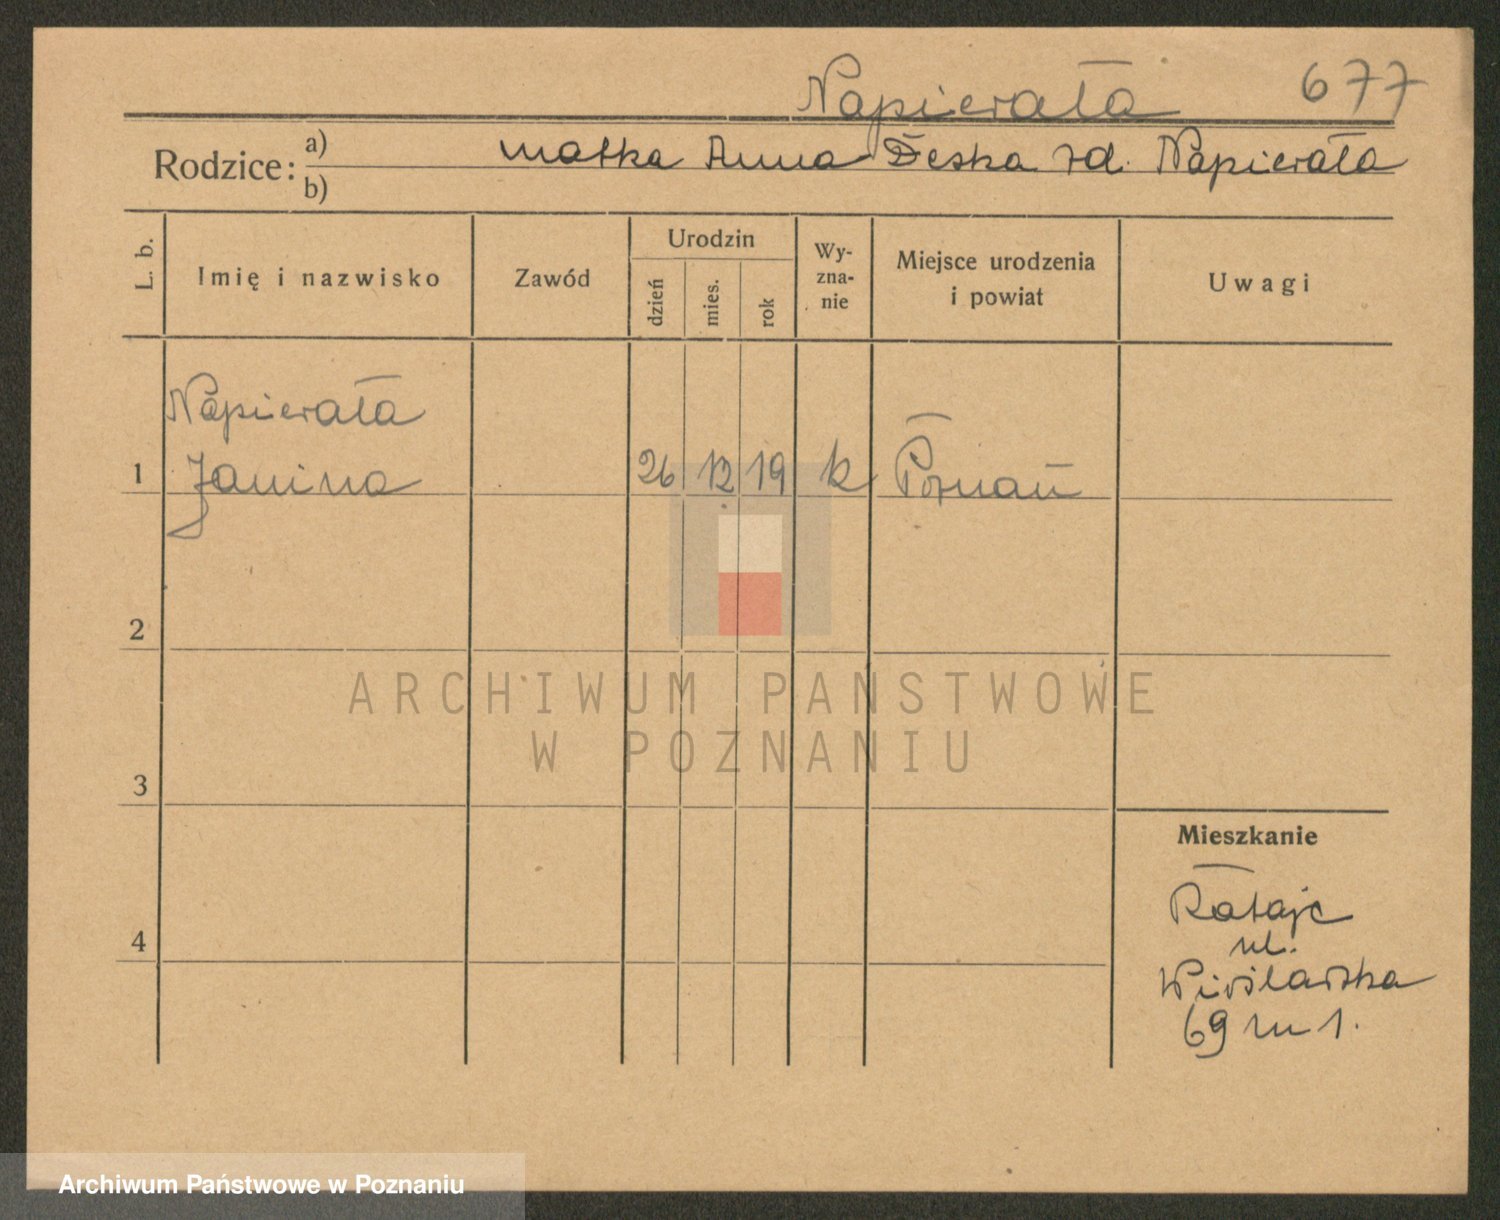 Napierała 677
Rodzice: a) matka Anna Deska zd. Napierała
b)
L. b.
Imię i nazwisko
Zawód
Urodzin
dzień
mies.
rok
Wy-
zna-
nie
Miejsce urodzenia
i powiat
Uwagi
Napierała
1 Janina 26 12 19 k Poznań
2
3
4
Mieszkanie
Rataje
ul.
Wiślarska
69 m 1.
ARCHIWUM PAŃSTWOWE
W POZNANIU
Archiwum Państwowe w Poznaniu